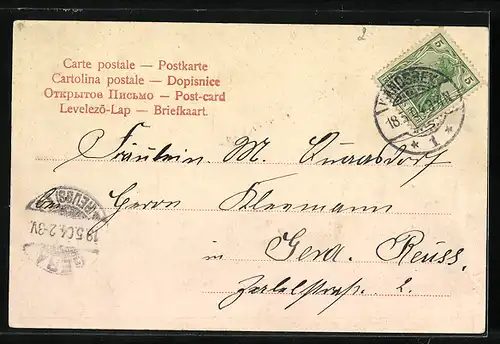 2
Carte postale — Postkarte
Cartolina postale — Dopisnice
Открытое Письмо — Post-card
Levelezō-Lap — Briefkaart.
5 5
* 1 *
Fräulein M. Quaasdorf
bei Herrn Kleemann
in Gera. Reuss.
Zabelstraße 2.
GERA (REUSS)
19.5.04. 2-3V.